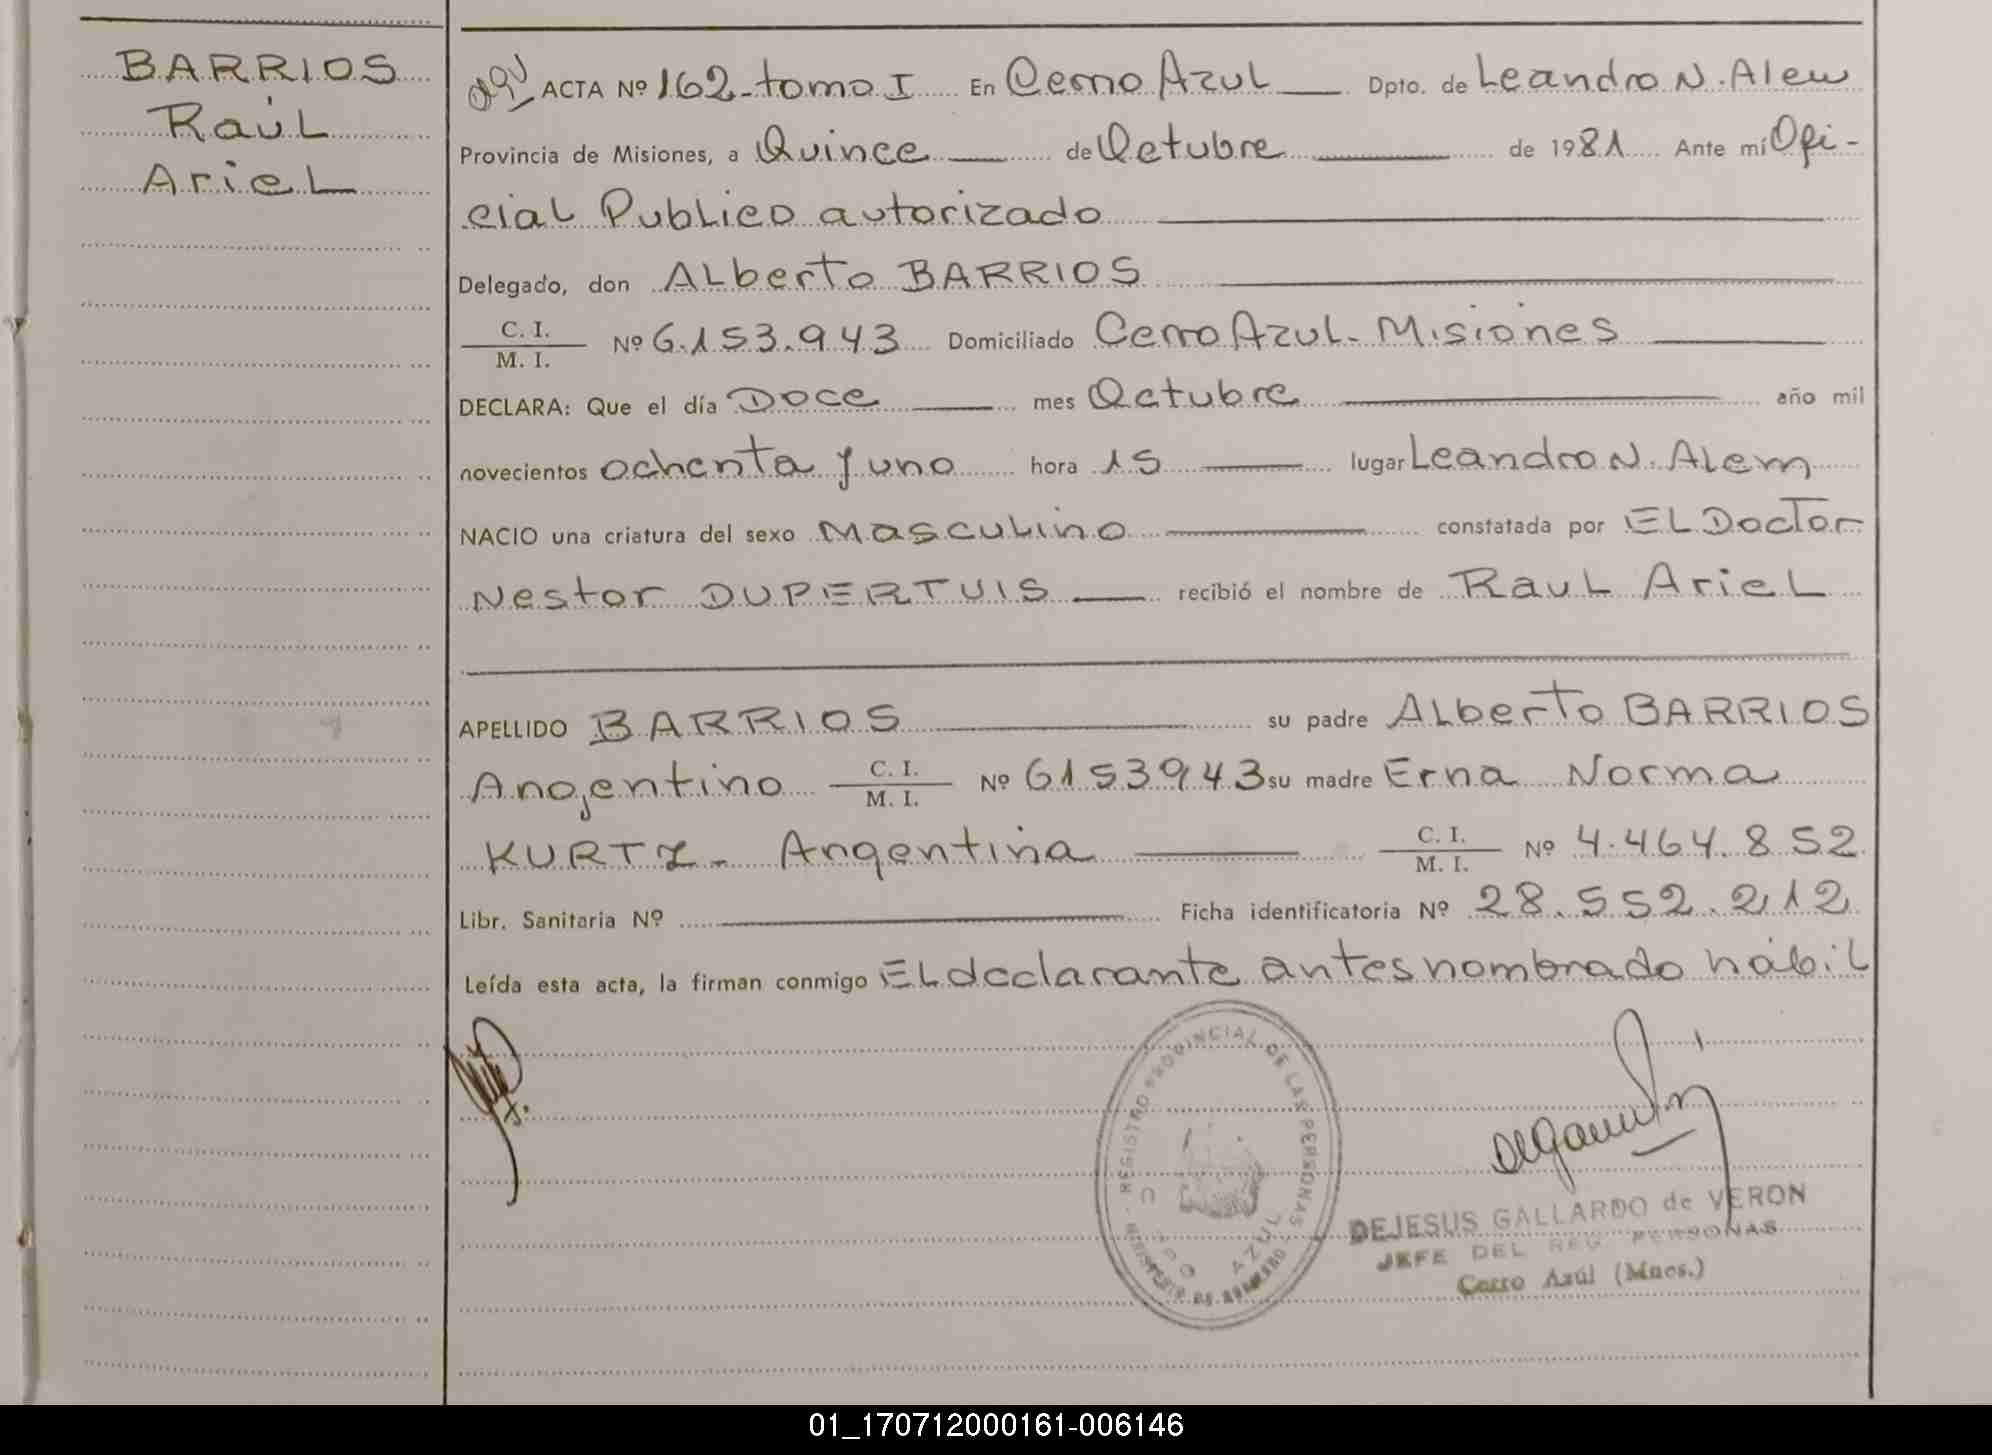 BARRIOS
Raúl
Ariel
ACTA Nº 162-tomo I En Cerro Azul Dpto. de Leandro N. Alem
Provincia de Misiones, a Quince de Octubre de 1981 Ante mí Ofi-
cial Publico autorizado
Delegado, don Alberto BARRIOS
C. I.
M. I.
Nº 6.153.943 Domiciliado Cerro Azul - Misiones
DECLARA: Que el día Doce mes Octubre año mil
novecientos ochenta y uno hora 15 lugar Leandro N. Alem
NACIO una criatura del sexo Masculino constatada por EL Doctor
Nestor DUPERTUIS recibió el nombre de Raul Ariel
APELLIDO BARRIOS su padre Alberto BARRIOS
Argentino C. I. M. I. Nº 6153943 su madre Erna Norma
KURTZ - Argentina C. I. M. I. Nº 4.464.852
Libr. Sanitaria Nº Ficha identificatoria Nº 28.552.212
Leída esta acta, la firman conmigo EL declarante antes nombrado hábil
REGISTRO PROVINCIAL DE LAS PERSONAS
MINISTERIO DE GOBIERNO
AZUL
DEJESUS GALLARDO de VERON
JEFE DEL REG. PERSONAS
Cerro Azúl (Mnes.)
01_170712000161-006146